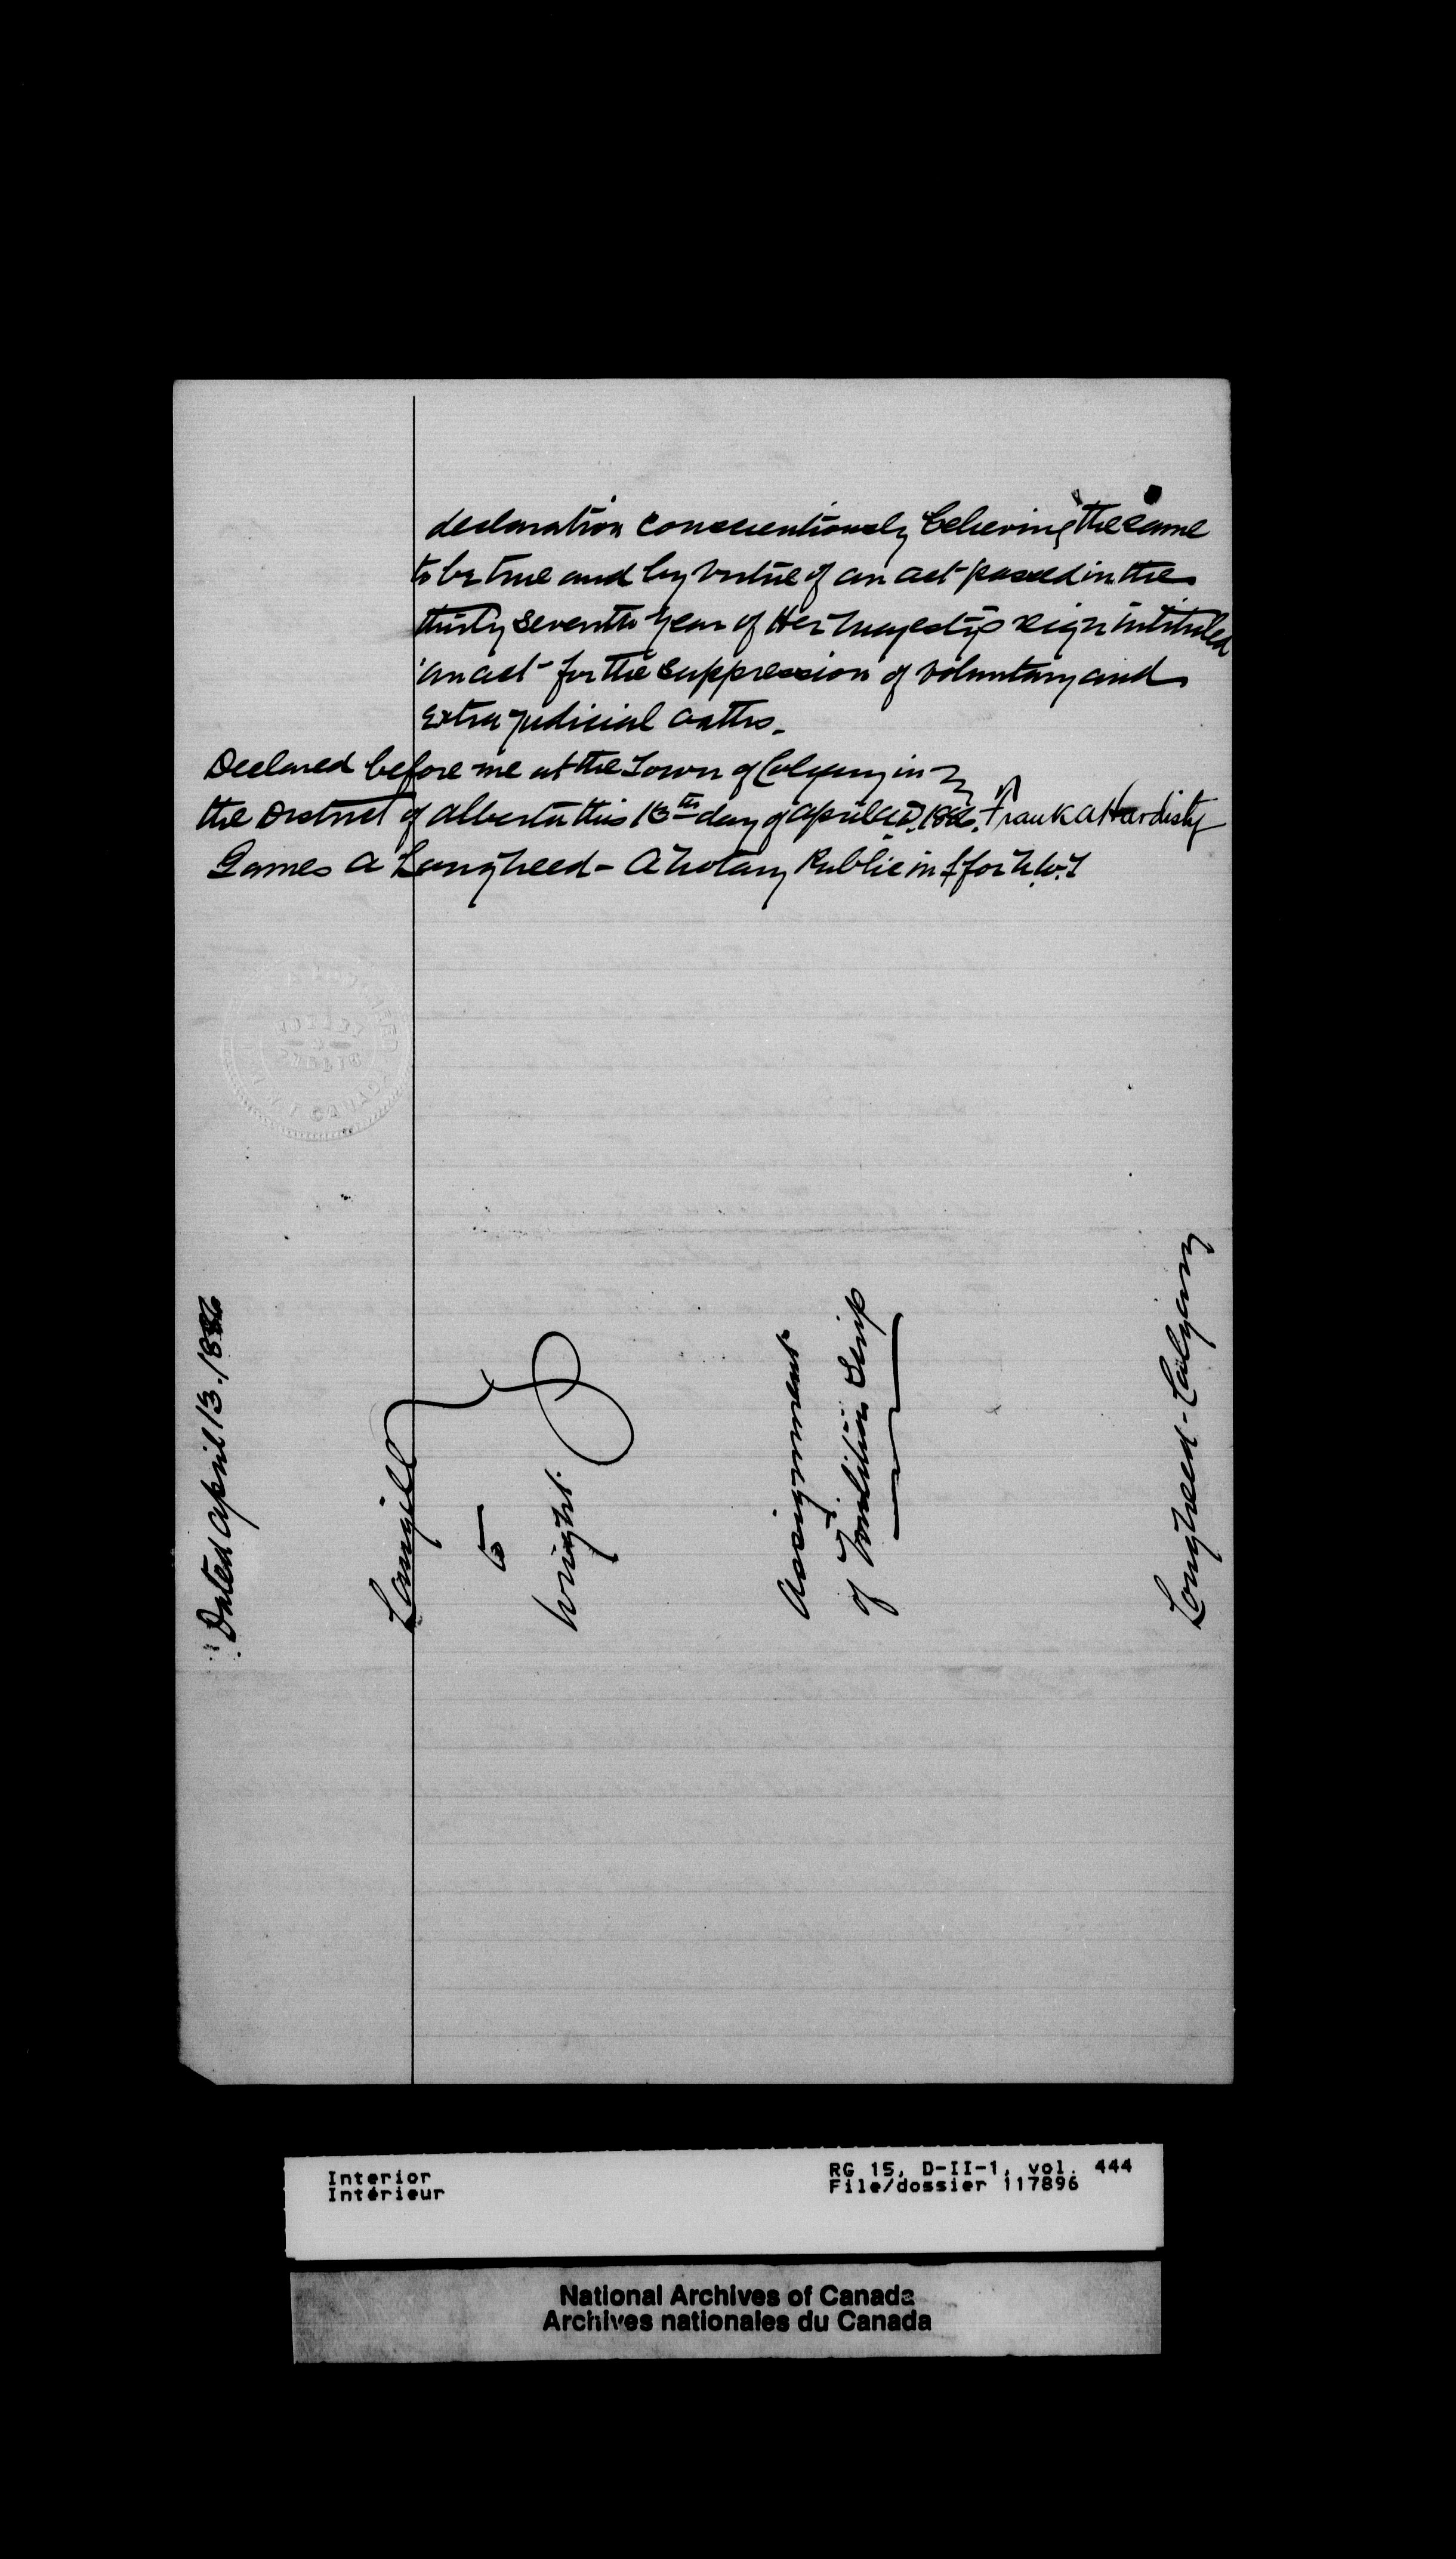 declaration conscientiously believing the same
to be true and by virtue of an act passed in the
thirty seventh year of Her Majestys reign intituled
'an act for the suppression of voluntary and
extra judicial oaths.
Declared before me at the Town of Calgary in
the District of Alberta this 13th day of April A.D. 1886. Frank A Hardisty
James A Lougheed - A Notary Public in & for N.W.T
NOTARY
PUBLIC
N.W.T CANADA
Dated April 13. 1886
Langill
to
Wright.
Assignment
of Military Scrip
Lougheed - Calgary
Interior
Intérieur
RG 15, D-II-1, vol. 444
File/dossier 117896
National Archives of Canada
Archives nationales du Canada